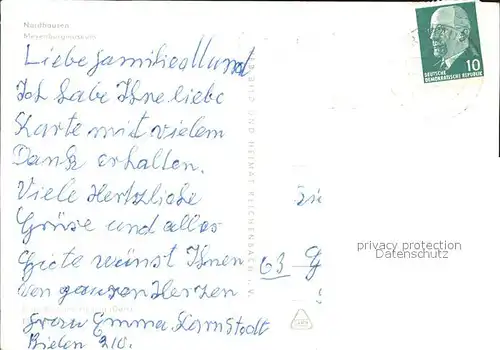 Nordhausen
Meyenburgmuseum
Liebe Familie
Ich habe Ihre liebe
Karte mit vielem
Dank erhalten.
Viele Hertzliche
Grüse und alles
Gute wünst Ihnen
von ganzen Herzen
Frau Emma Karnstedt
Bielen 210.
63 G
BILD UND HEIMAT REICHENBACH I. V.
10
DEUTSCHE
DEMOKRATISCHE REPUBLIK
privacy protection
Datenschutz